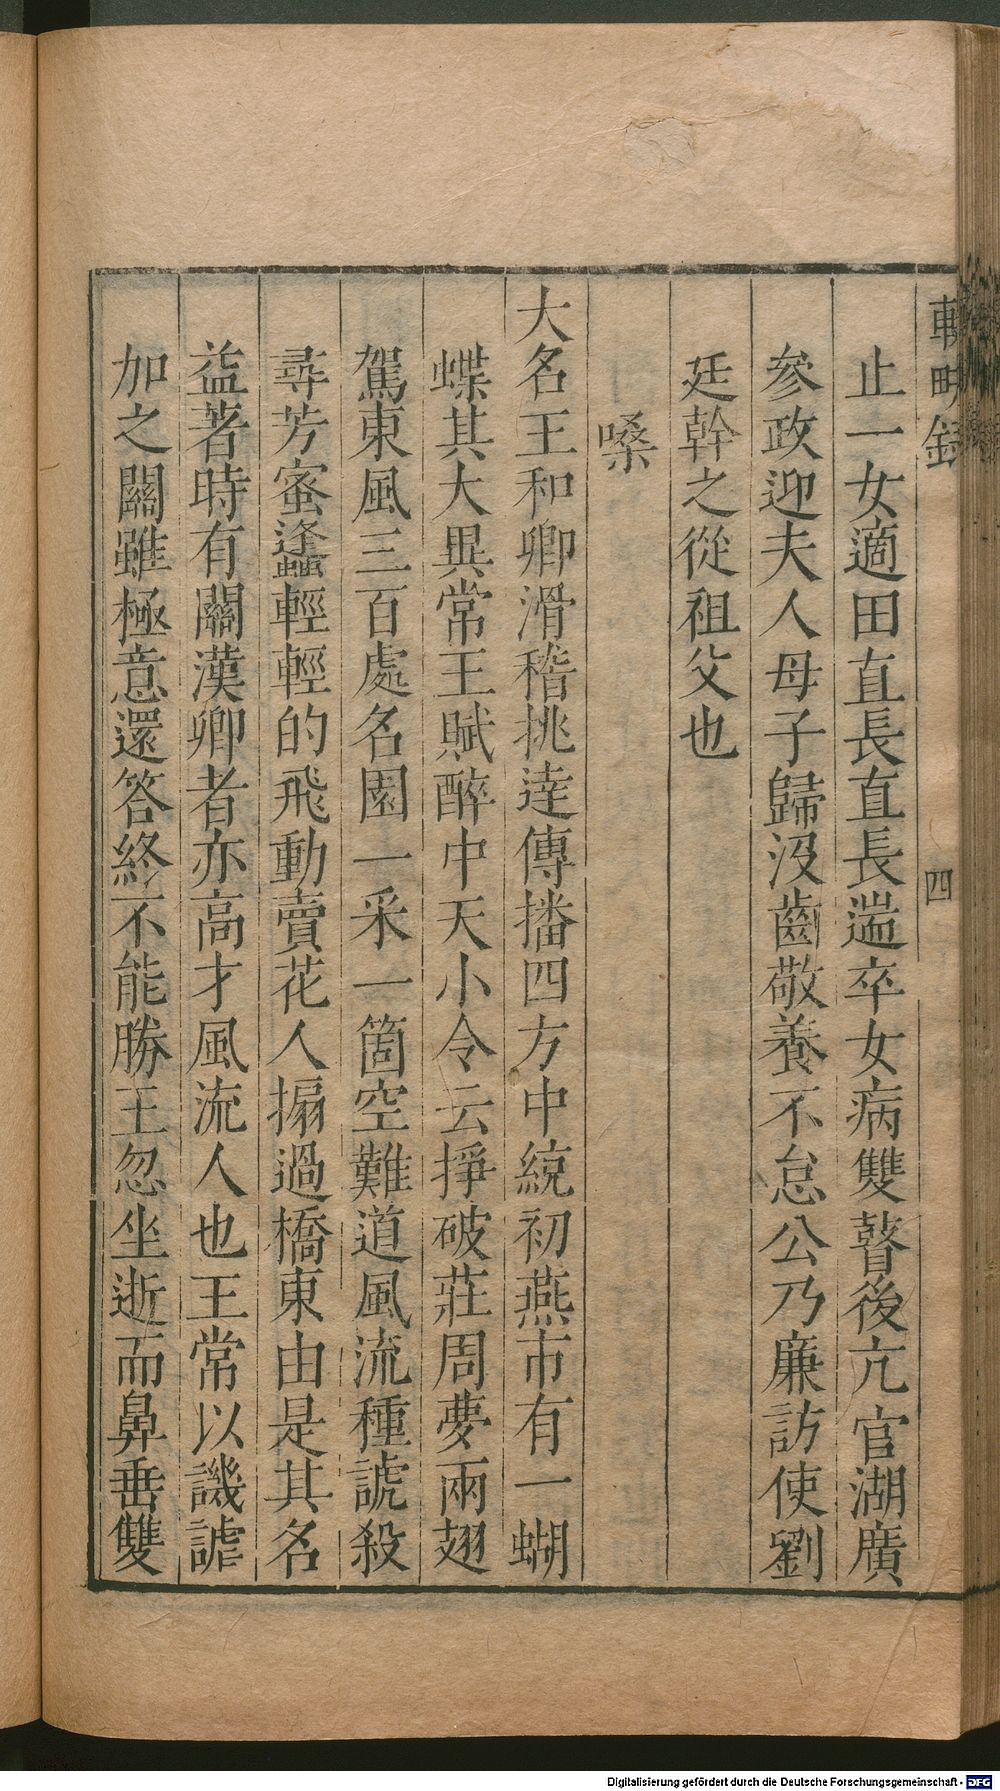 輟畊錄
四
止一女適田直長直長遄卒女病雙瞽後亢官湖廣
參政迎夫人母子歸汲齒敬養不怠公乃廉訪使劉
廷幹之從祖父也
嗓
大名王和卿滑稽挑達傳播四方中統初燕市有一蝴
蝶其大異常王賦醉中天小令云掙破莊周夢兩翅
駕東風三百處名園一釆一箇空難道風流種諕殺
尋芳蜜蜂輕輕的飛動賣花人搧過橋東由是其名
益著時有關漢卿者亦高才風流人也王常以譏謔
加之關雖極意還答終不能勝王忽坐逝而鼻垂雙
Digitalisierung gefördert durch die Deutsche Forschungsgemeinschaft - DFG